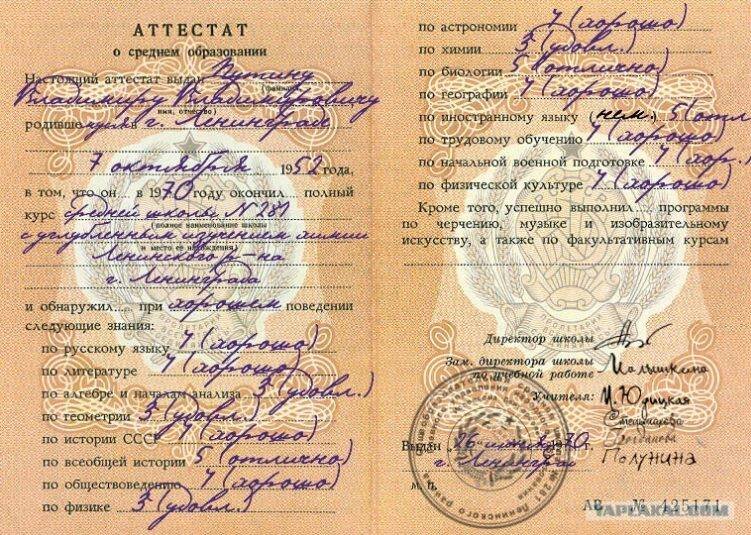 АТТЕСТАТ
о среднем образовании
Настоящий аттестат выдан Путину
(фамилия)
Владимиру Владимировичу
имя, отчество)
родившемуся в г. Ленинград
7 октября 1952 года,
в том, что он в 1970 году окончил полный
курс средней школы № 281
(полное наименование школы
с углубленным изучением химии
и место ее нахождения)
Ленинского р-на
г. Ленинграда
и обнаружил при хорошем поведении
следующие знания:
по русскому языку 4 (хорошо)
по литературе 4 (хорошо)
по алгебре и началам анализа 3 (удовл.)
по геометрии 3 (удовл.)
по истории СССР 4 (хорошо)
по всеобщей истории 5 (отлично)
по обществоведению 4 (хорошо)
по физике 3 (удовл.)
по астрономии 4 (хорошо)
по химии 3 (удовл.)
по биологии 5 (отлично)
по географии 4 (хорошо)
по иностранному языку (нем.) 5 (отл
по трудовому обучению 4 (хорошо)
по начальной военной подготовке 4 (хор.)
по физической культуре 4 (хорошо)
Кроме того, успешно выполнил программы
по черчению, музыке и изобразительному
искусству, а также по факультативным курсам
Директор школы
Зам. директора школы
по учебной работе
Учителя: И. Юдицкая
Стельмахова
Богданова
Полунина
Выдан 1970 г.
г. Ленинград
м. п.
АВ № 425171
YAPLAKAL.COM